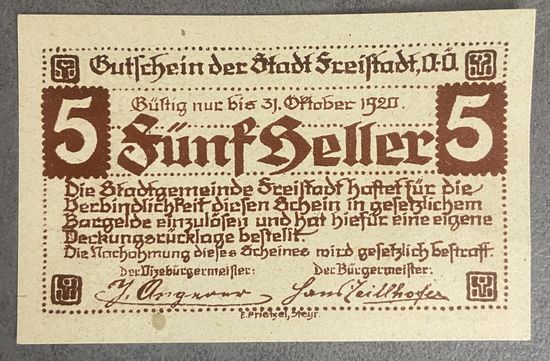 Gutschein der Stadt Freistadt, O.Ö.
Gültig nur bis 31. Oktober 1920.
5 Fünf Heller 5
Die Stadtgemeinde Freistadt haftet für die
Verbindlichkeit diesen Schein in gesetzlichem
Bargelde einzulösen und hat hiefür eine eigene
Deckungsrücklage bestellt.
Die Nachahmung dieses Scheines wird gesetzlich bestraft.
Der Vizebürgermeister: Der Bürgermeister:
J. Angerer Hans Zeillhofer
E. Prietzel, Steyr.